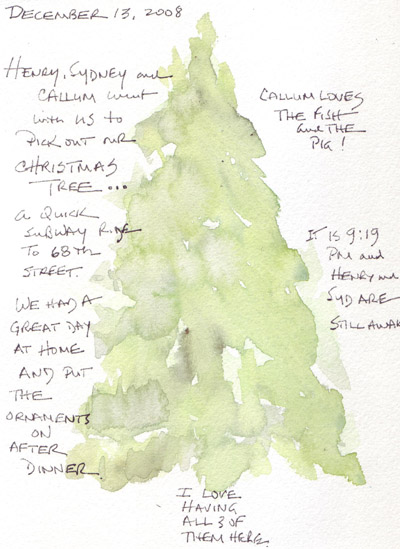 DECEMBER 13, 2008
HENRY, SYDNEY and
CALLUM went
with us to
PICK OUT OUR
CHRISTMAS
TREE...
a QUICK
SUBWAY RIDE
TO 68TH
STREET.
WE HAD A
GREAT DAY
AT HOME
AND PUT
THE
ORNAMENTS
ON
AFTER
DINNER.
CALLUM LOVES
THE FISH
and THE
PIG!
IT IS 9:19
PM and
HENRY and
SYD ARE
STILL AWAK
I LOVE
HAVING
ALL 3 OF
THEM HERE.